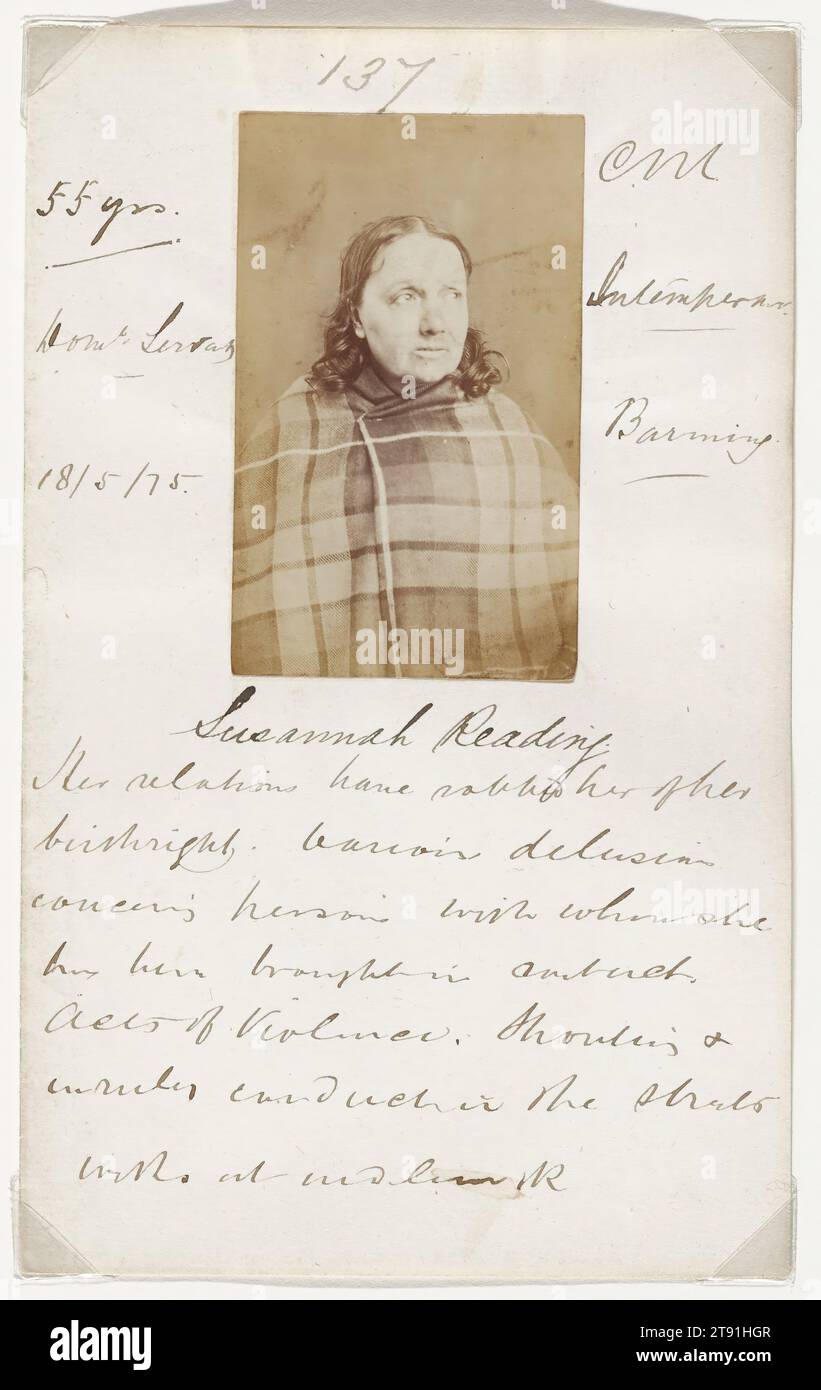 137
55 yrs.
C.M.
Domc Servant
Intemperance.
18/5/75.
Barming.
Susannah Reading.
Her relations have robbed her of her
birthright. Various delusions
concerng persons with whom she
has been brought in contact.
Acts of Violence. Shouting &
unruly conduct in the streets
works at
alamy
Image ID: 2T91HGR
www.alamy.com